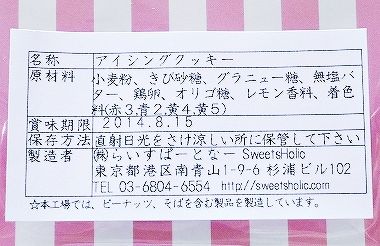 名称 アイシングクッキー
原材料 小麦粉、きび砂糖、グラニュー糖、無塩バ
ター、鶏卵、オリゴ糖、レモン香料、着色
料(赤3,青2,黄4,黄5)
賞味期限 2014.8.15
保存方法 直射日光をさけ涼しい所に保管して下さい
製造者 ㈱らいすぱーとなー SweetsHolic
東京都港区南青山1-9-6 杉浦ビル102
TEL 03-6804-6554 http://sweetsholic.com
☆本工場では、ピーナッツ、そばを含む製品を製造しています。